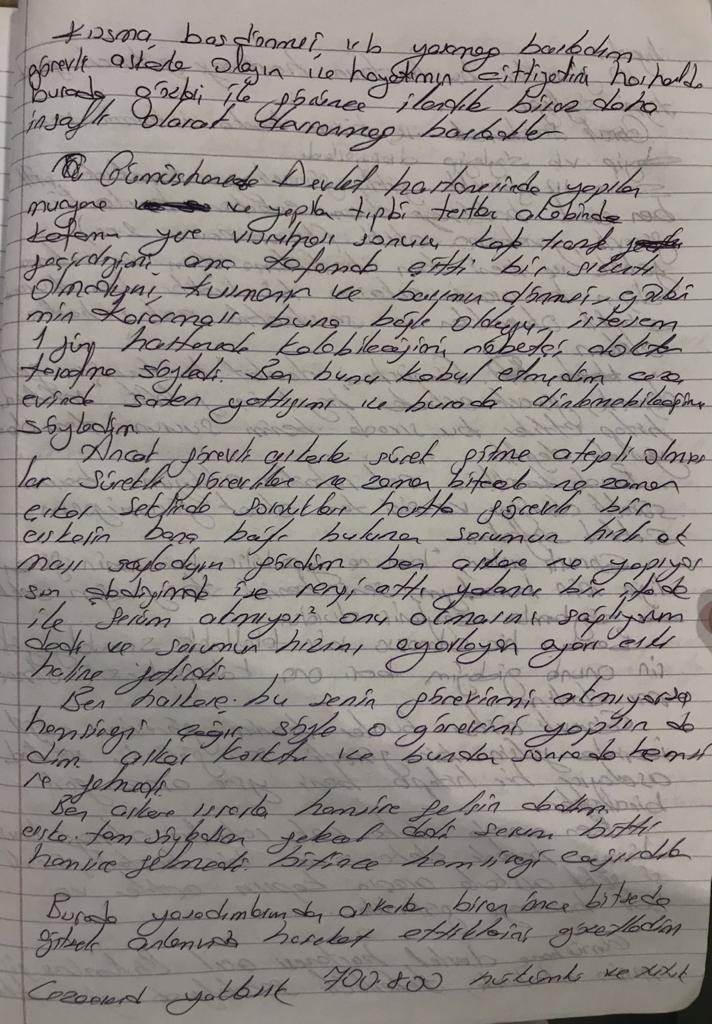 Kusma, baş dönmesi, vb yaşamaya başladım
görevli askerde olayın ile hayatımın ciddiyetini
burada gözleri ile görünce biraz daha
insaflı olarak davranmaya başladılar
Gümüşhanede Devlet hastanesinde yapılan
muayene ve yapılan tıbbi tetkik akabinde
kafamı yere vurulması sonucu kafa
geçirdiğimi ama kafamda ciddi bir sıkıntı
olmadığını, kusmanın ve başımın dönmesi, gözle
rimin kararması buna bağlı olduğu, istersem
1 gün hastanede kalabileceğimi nöbetçi doktor
tarafıma söyledi. Ben bunu kabul etmedim ceza
evinde zaten yattığımı ve burada dinlenebileceğimi
söyledim
Ancak görevli askerlerle sürekli gitme
lar sürekli görevlilere ne zaman bitecek ne zaman
çıkar şeklinde sordukları hatta görevli bir
askerin bana bağlı bulunan serumun hızlı ak
ması sağladığını gördüm ben askere ne yapıyor
sun dediğimde ise rengi attı, yalancı bir ifade
ile serum akmıyor onu akmasını sağlıyorum
dedi ve serumun hızını ayarlayan ayarı eski
haline getirdi.
Ben bu senin görevin mi akmıyorsa
hemşireyi çağır söyle o görevini yapsın de
dim asker korktu ve bundan sonrada
ne gelmedi.
Ben askere ısrarla hemşire gelsin dedim
asker tam söyledim gelecek dedi serum bitti
hemşire gelmedi. bitince hemşireyi çağırdılar
Burada yaşadıklarımdan askerler biran önce bitsede
gitsek anlamında hareket ettiklerini gözlemledim
Cezaevinde yaklaşık 700-800 hükümlü ve